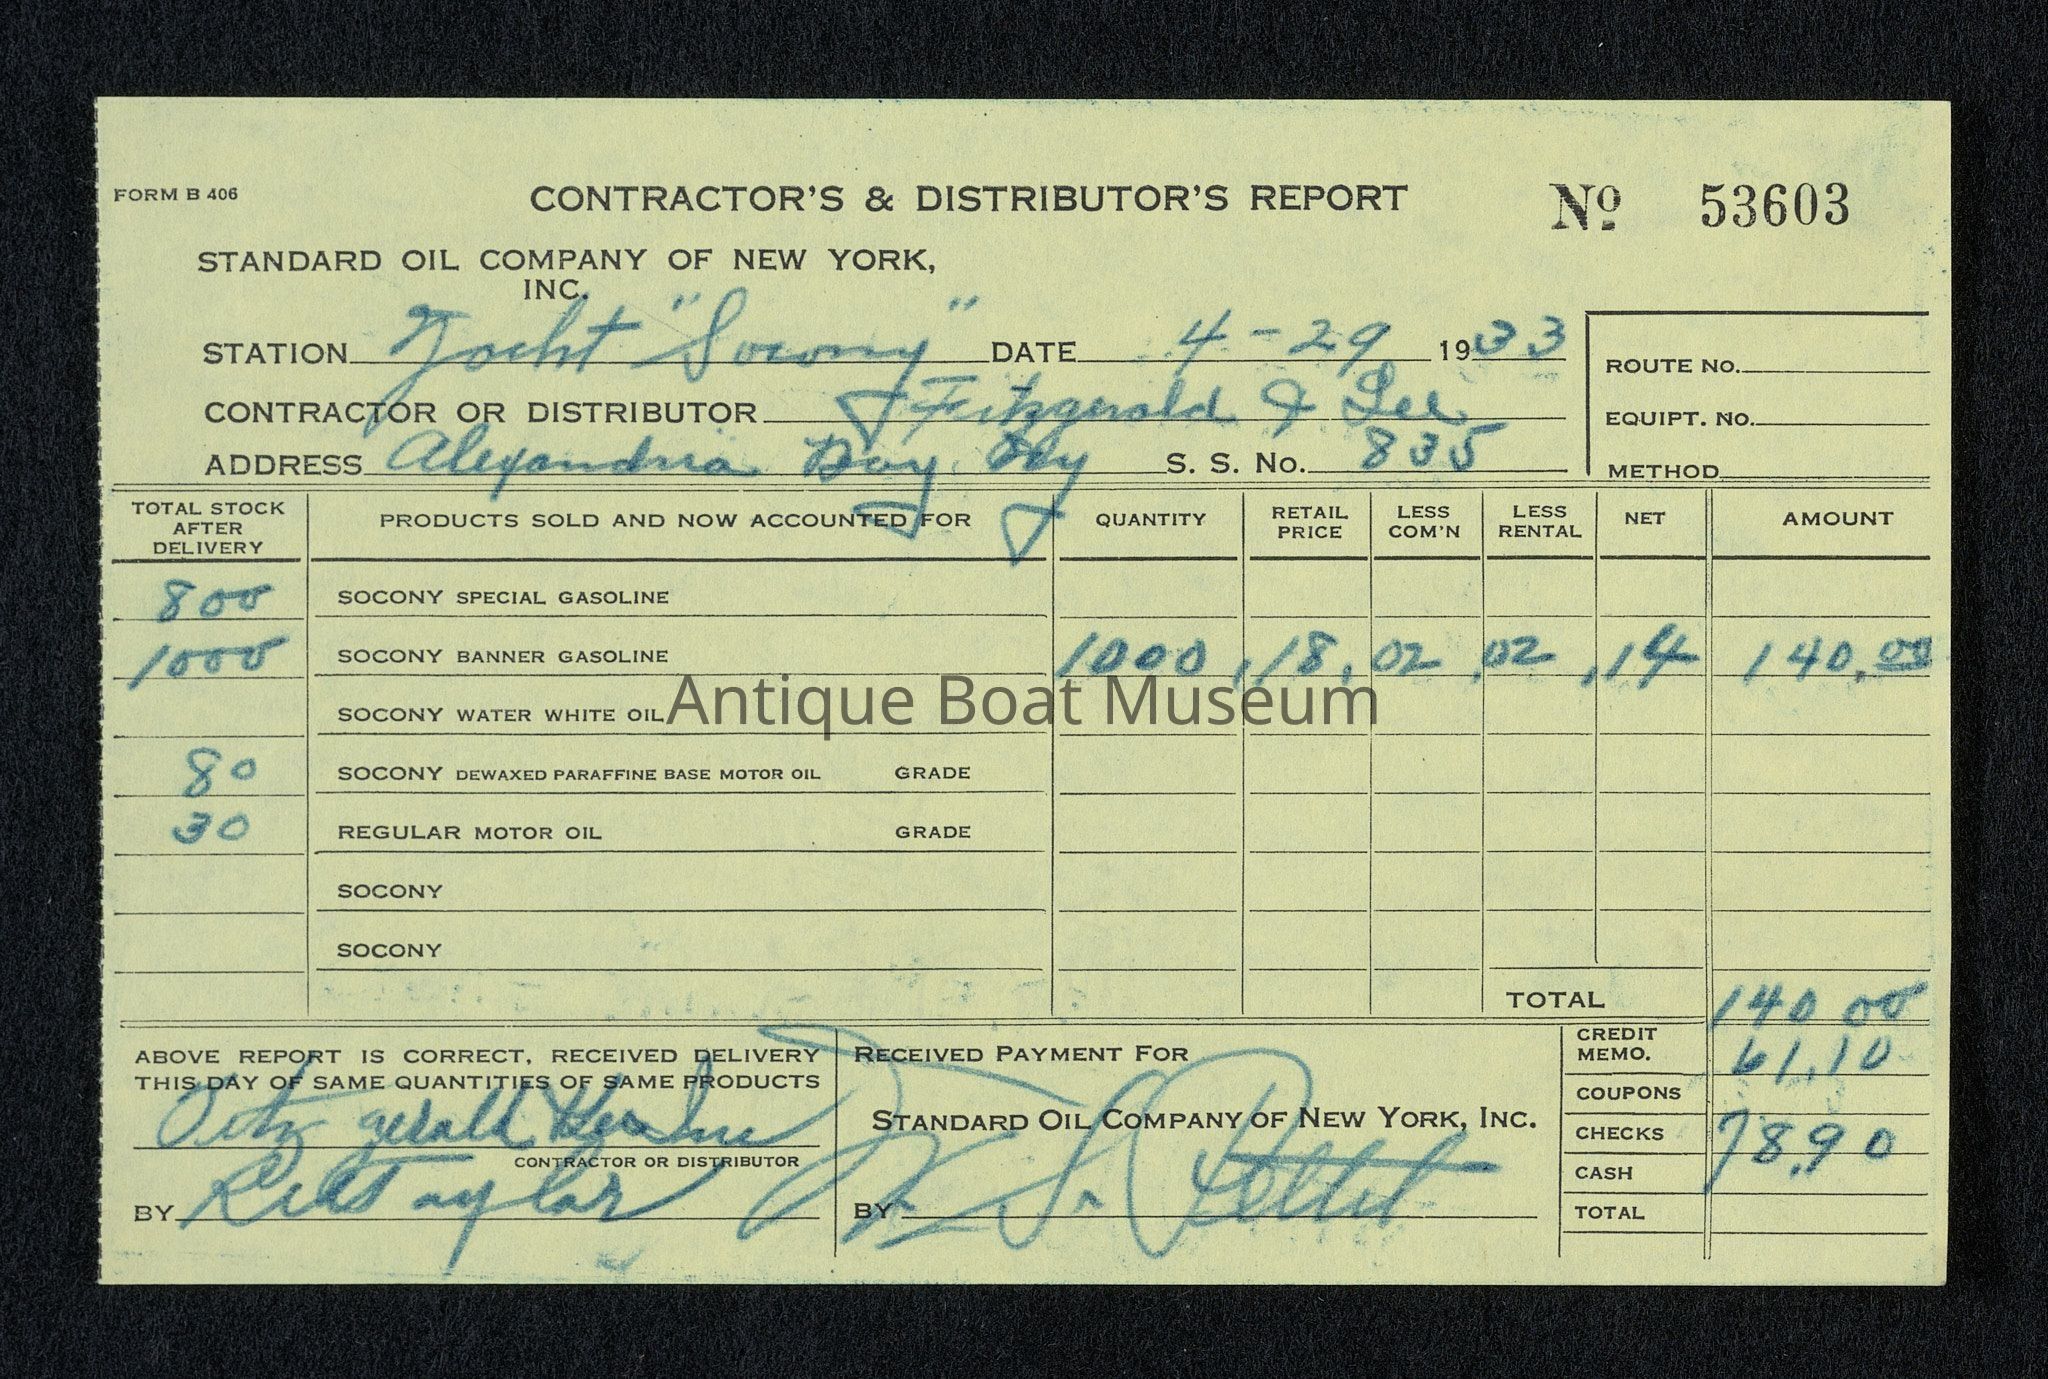 FORM B 406
CONTRACTOR'S & DISTRIBUTOR'S REPORT
No 53603
STANDARD OIL COMPANY OF NEW YORK,
INC.
STATION Yacht "Socony" DATE 4-29 1933
CONTRACTOR OR DISTRIBUTOR Fitzgerald & Lee
ADDRESS Alexandria Bay, S. S. No. 835
ROUTE No.
EQUIPT. No.
METHOD
TOTAL STOCK AFTER DELIVERY PRODUCTS SOLD AND NOW ACCOUNTED FOR QUANTITY RETAIL PRICE LESS COM'N LESS RENTAL NET AMOUNT
800 SOCONY SPECIAL GASOLINE
1000 SOCONY BANNER GASOLINE 1000 .18 .02 .02 .14 140.00
SOCONY WATER WHITE OIL
Antique Boat Museum
80 SOCONY DEWAXED PARAFFINE BASE MOTOR OIL GRADE
30 REGULAR MOTOR OIL GRADE
SOCONY
SOCONY
TOTAL 140 00
ABOVE REPORT IS CORRECT, RECEIVED DELIVERY
THIS DAY OF SAME QUANTITIES OF SAME PRODUCTS
Fitzgerald
CONTRACTOR OR DISTRIBUTOR
BY Taylor
RECEIVED PAYMENT FOR
STANDARD OIL COMPANY OF NEW YORK, INC.
BY
CREDIT MEMO. 61.10
COUPONS
CHECKS 78.90
CASH
TOTAL